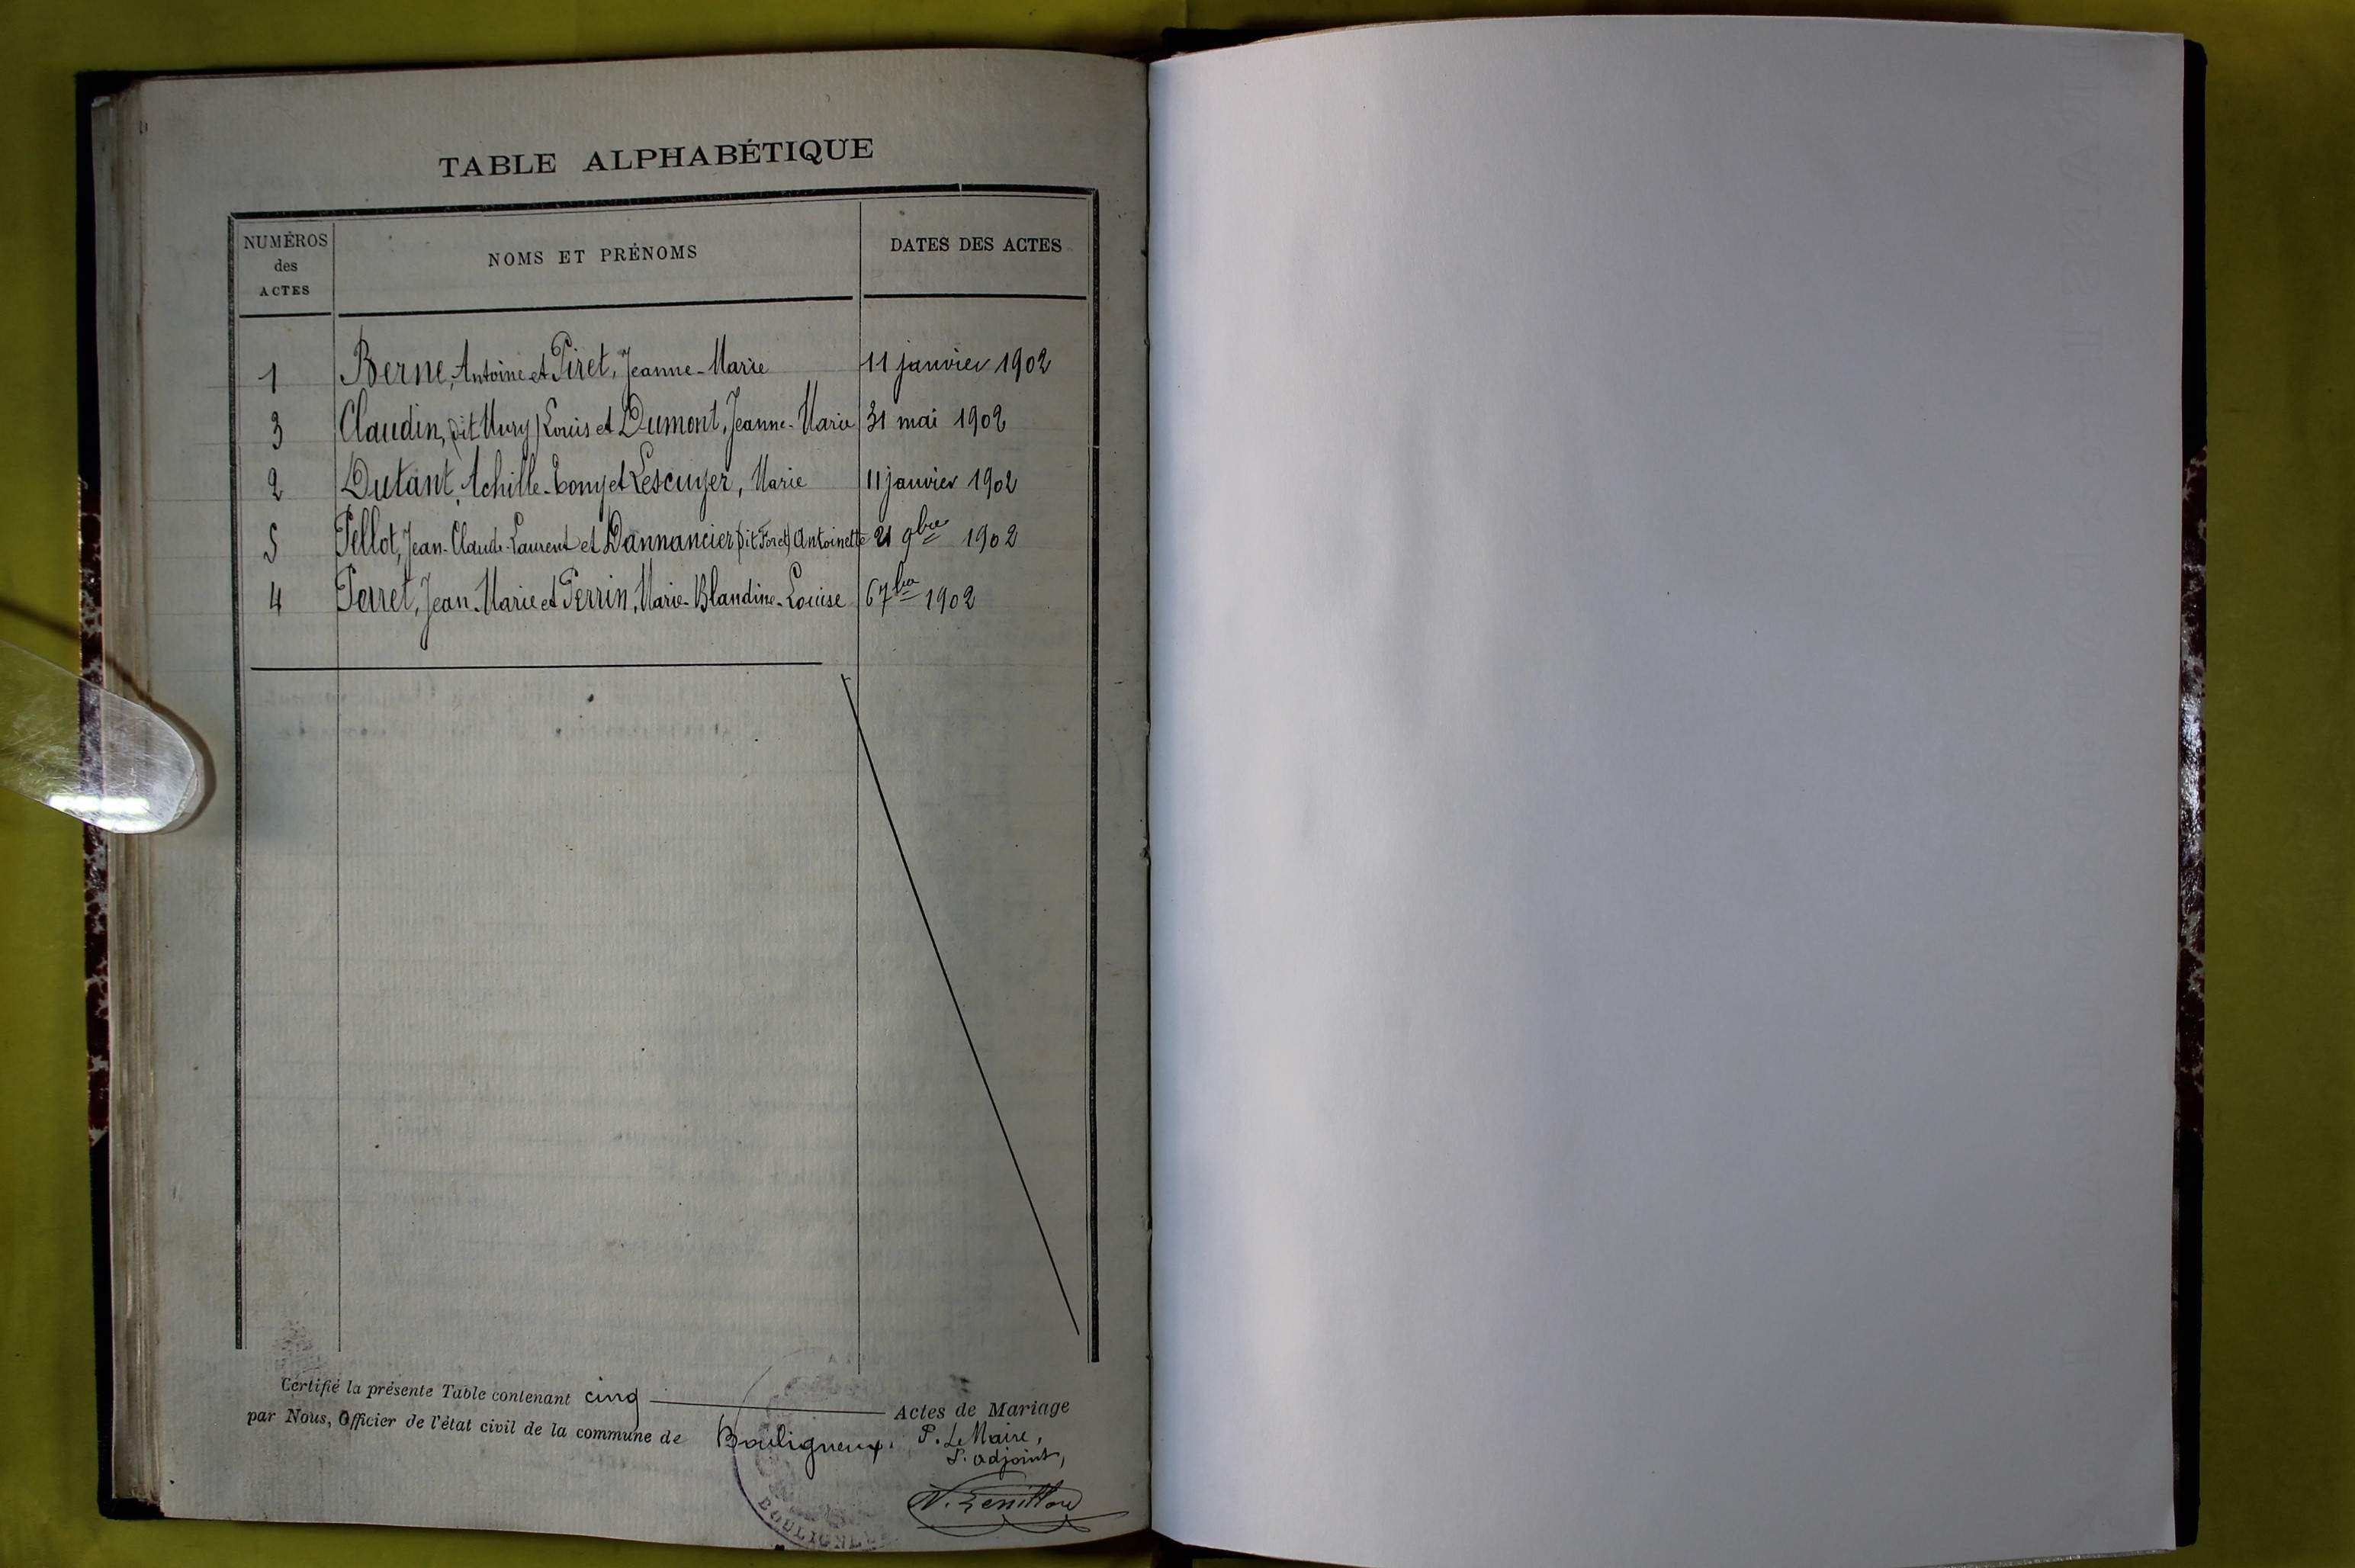 TABLE ALPHABÉTIQUE
NUMÉROS des ACTES NOMS ET PRÉNOMS DATES DES ACTES
1 Berne, Antoine et Piret, Jeanne-Marie 11 janvier 1902
3 Claudin, (dit Mury) Louis et Dumont, Jeanne-Marie 31 mai 1902
2 Dutant, Achille-Tony et Lescuyer, Marie 11 janvier 1902
5 Pellot, Jean-Claude-Laurent et Dannancier (dit Foret) Antoinette 21 9bre 1902
4 Perret, Jean-Marie et Perrin, Marie-Blandine-Louise 6 7bre 1902
Certifié la présente Table contenant cinq Actes de Mariage
par Nous, Officier de l'état civil de la commune de Bouligneux. P. Le Maire,
L'adjoint,
BOULIGNEUX